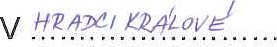 V HRADCI KRÁLOVÉ